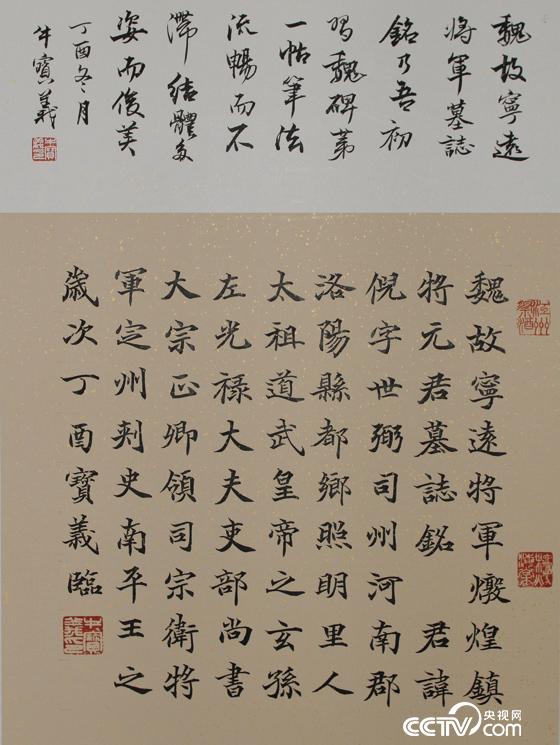 魏故寧遠
將軍墓誌
銘乃吾初
習魏碑第
一帖筆法
流暢而不
滯結體多
姿而俊美
丁酉冬月
牛寶義
魏故寧遠將軍燉煌鎮
將元君墓誌銘 君諱
倪字世弼司州河南郡
洛陽縣都鄉照明里人
太祖道武皇帝之玄孫
左光祿大夫吏部尚書
大宗正卿領司宗衛將
軍定州刺史南平王之
歲次丁酉寶義臨
CCTV.com 央视网